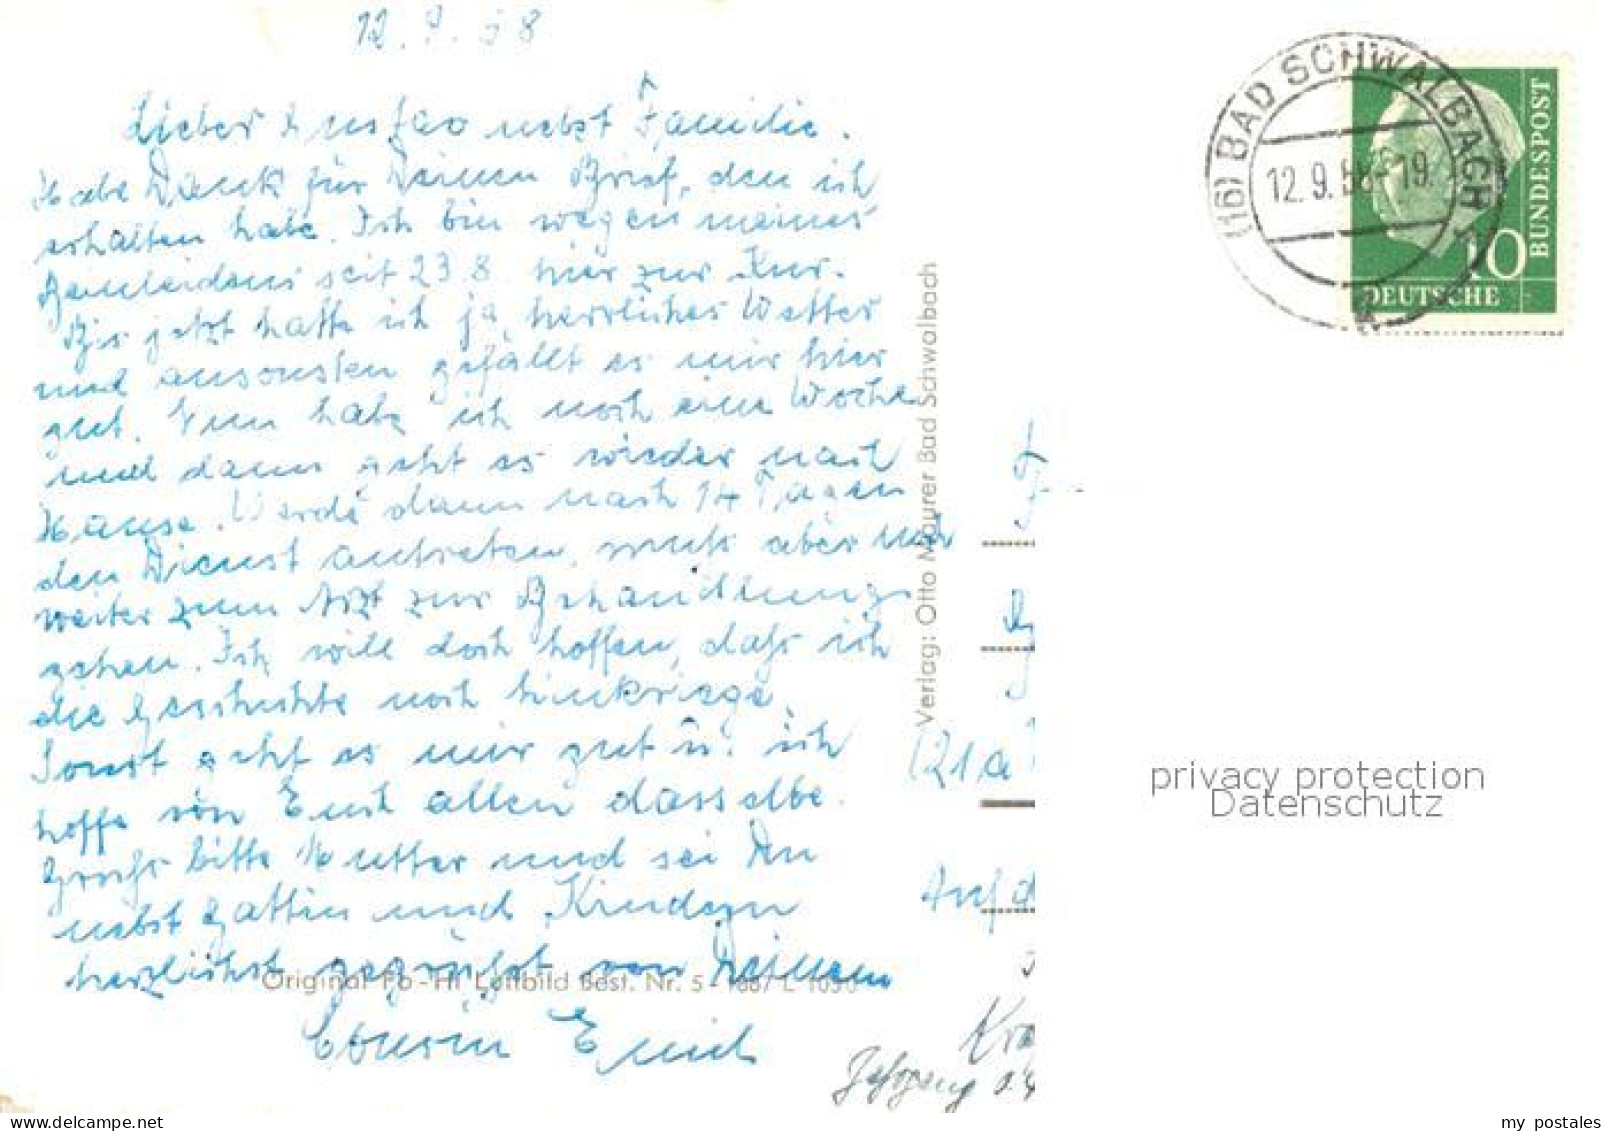 12. 9. 58
Lieber Gustav nebst Familie.
Habe Dank für Deinen Brief, den ich
erhalten habe. Ich bin wegen meines
seit 23.8. hier zur Kur.
Bis jetzt hatte ich ja herrliches Wetter
und ansonsten gefällt es mir hier
gut. Nun habe ich noch eine Woche
und dann geht es wieder nach
Hause. Werde dann nach 14 Tagen
den Dienst antreten, muß aber und
weiter zum Arzt zur Behandlung
gehen. Ich will doch hoffen, daß ich
die Geschichte noch hinkriege.
Sonst geht es mir gut u. ich
hoffe von Euch allen dasselbe.
Grüße bitte Mutter und sei Du
nebst Gattin und Kindern
herzlichst gegrüßt von Deinem
Cousin
Original Fo-Hi Luftbild Best. Nr. 5
Verlag: Otto Maurer Bad Schwalbach
(21a)
Auf d
(16) BAD SCHWALBACH 1
12.9.58-19
a
DEUTSCHE
BUNDESPOST
10
privacy protection
Datenschutz
www.delcampe.net
my_postales